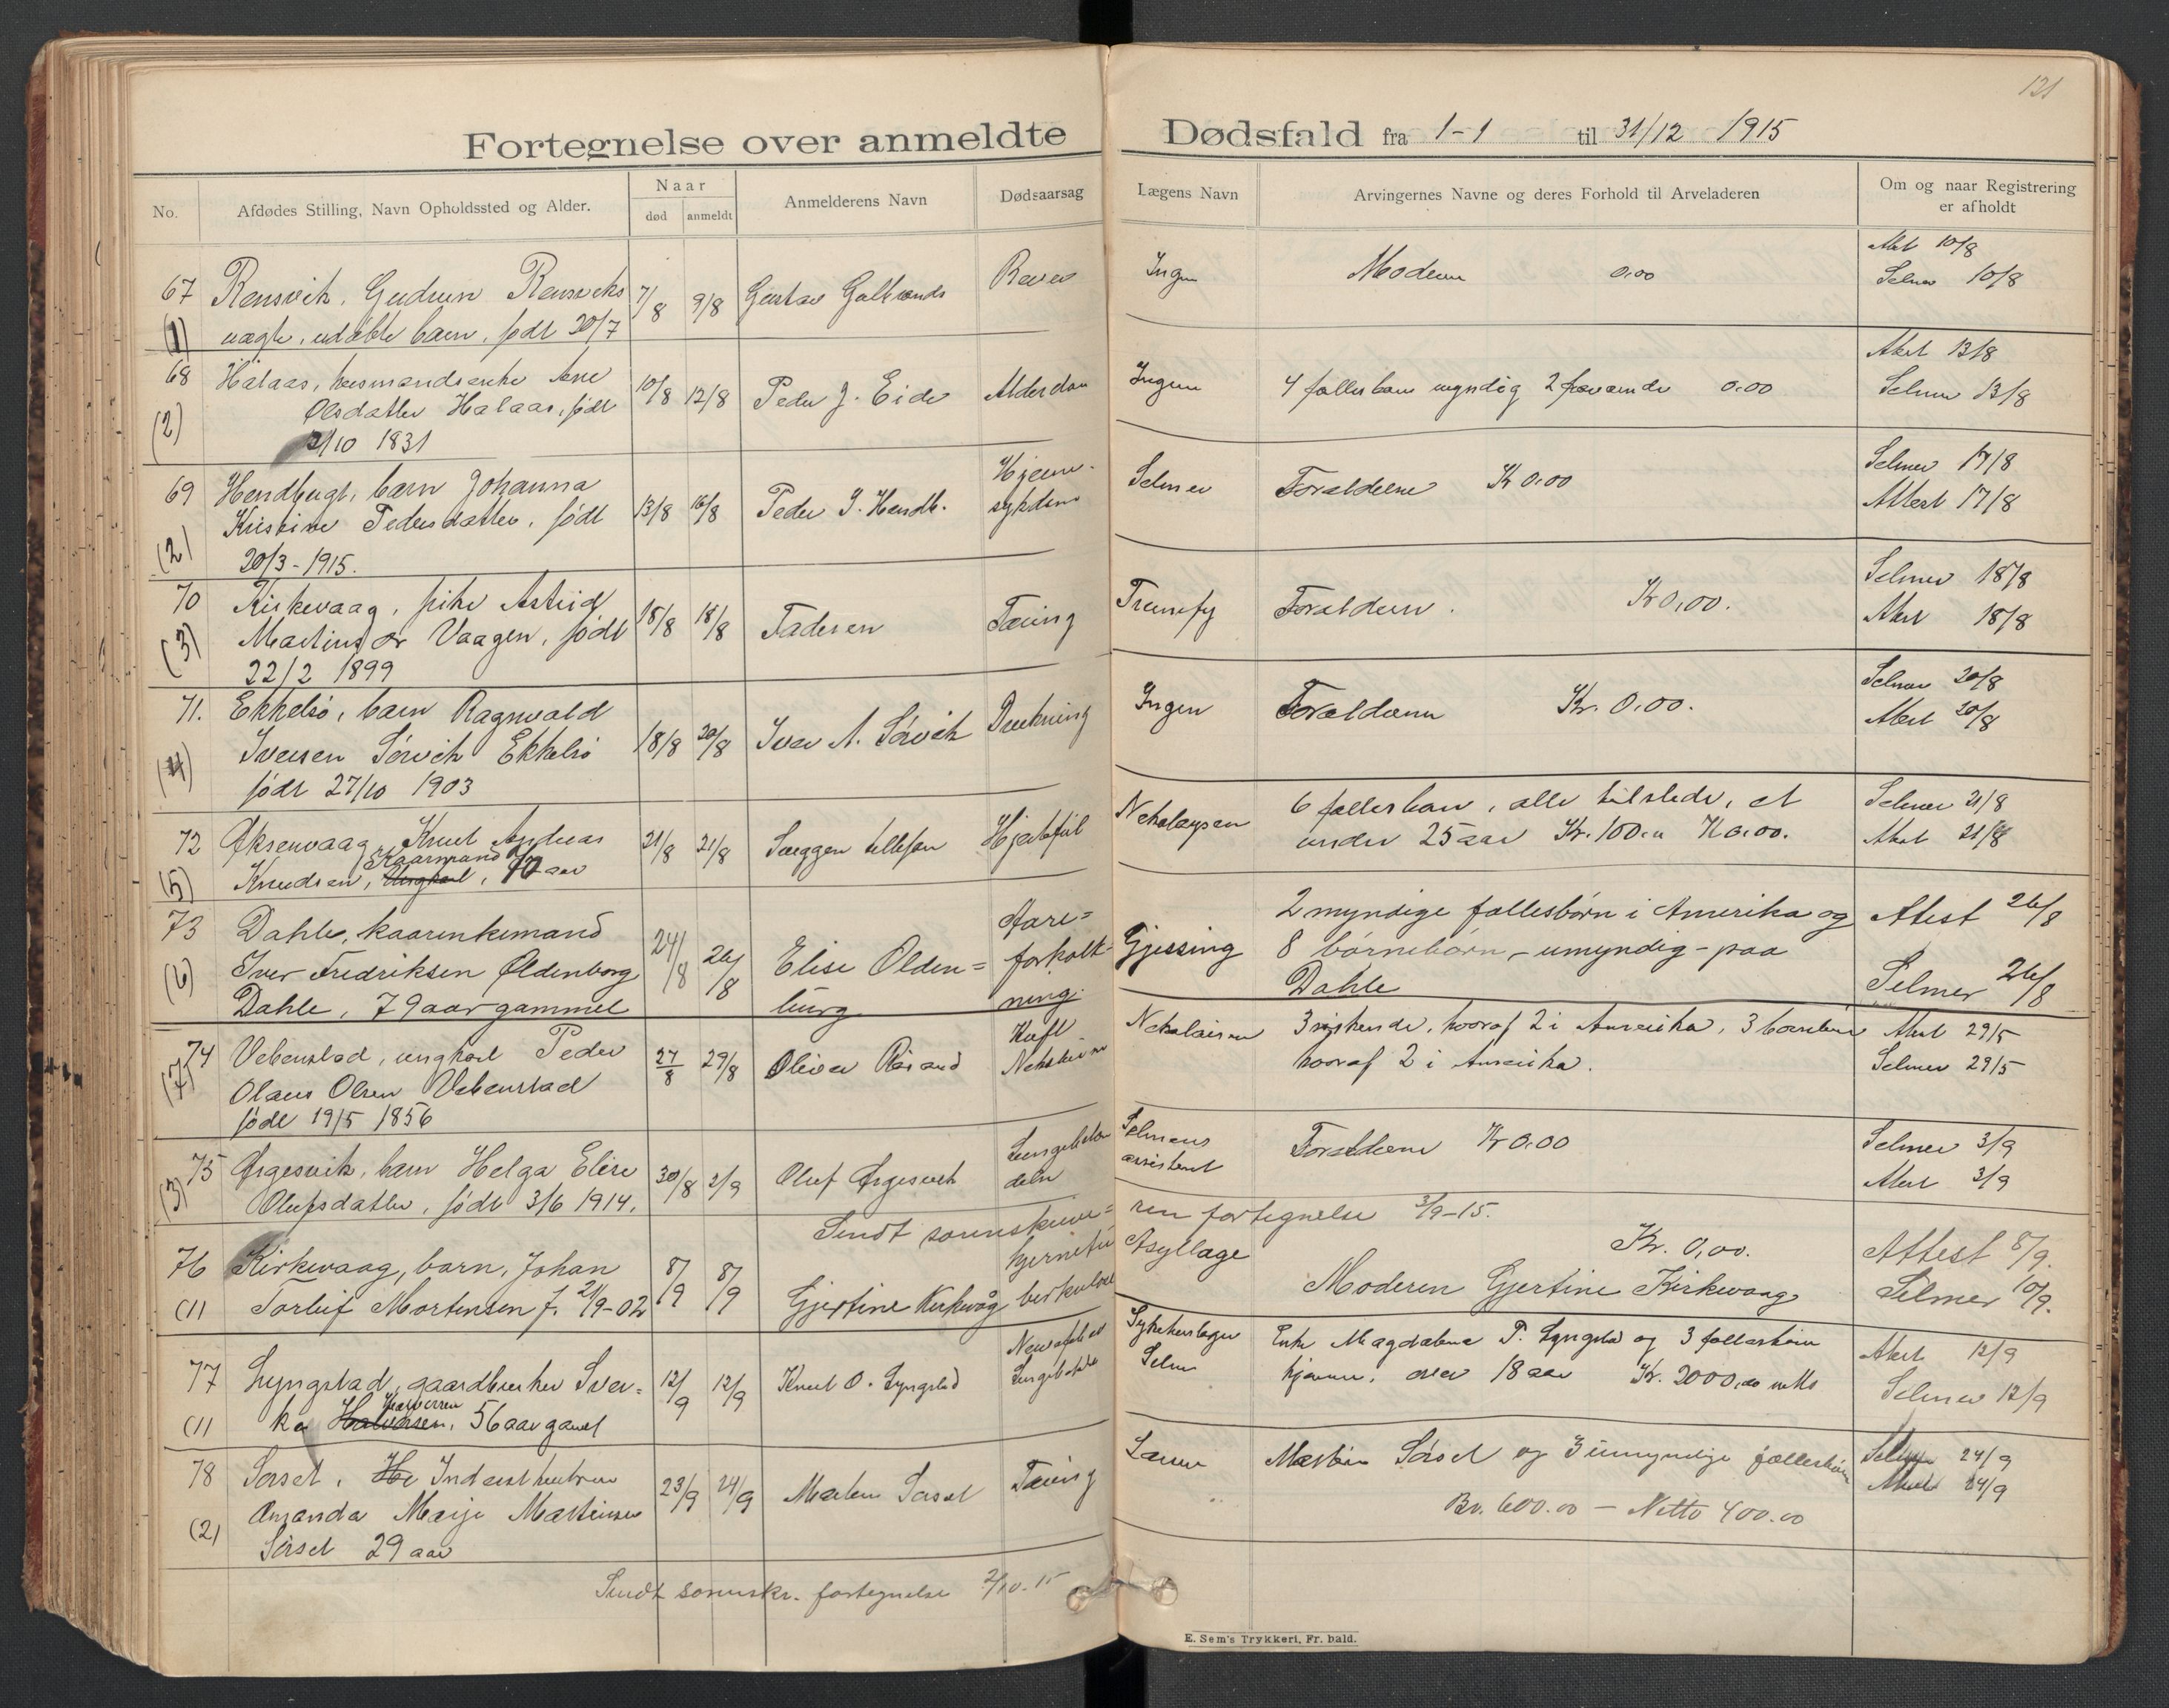 121
Fortegnelse over anmeldte Dødsfald fra 1-1 til 31/12 1915
No.
Afdødes Stilling, Navn Opholdssted og Alder.
Naar
død
anmeldt
Anmelderens Navn
Dødsaarsag
Lægens Navn
Arvingernes Navne og deres Forhold til Arveladeren
Om og naar Registrering
er afholdt
67 Rensvik, Gudrun Rensviks 7/8 9/8 Gustav Ingen Moderen 0.00 10/8
(1) født 20/7 Selmer 10/8
68 Halaas, Ane 10/8 12/8 Peder J. Eide Alderdom Ingen 4 fællesbarn myndig 2 0.00 Atest 13/8
(2) Olsdatter Halaas, født Selmer 13/8
2/10 1831
69 Hendbugt, barn Johanna 13/8 16/8 Peder J. Hendb. Hjerne- Selmer Forældrene Kr 0.00 Selmer 17/8
(2) Kristine Pedersdatter, født sykdom Attest 17/8
20/3-1915.
70 Kirkevaag, pike Astrid 15/8 18/8 Faderen Tæring Forældrene. Kr 0,00. Selmer 18/8
(3) Vaagen, født Atest 18/8
22/2 1899
71. Ekkelsö, barn Ragnvald 18/8 20/8 Iver A. Sörvik Drukning Ingen Forældrene Kr. 0.00. Selmer 20/8
(4) Iversen Sörvik Ekkelsö Atest 20/8
født 27/10 1903
72 Øksenvaag, Knut Andreas 21/8 21/8 Hjertefeil 6 fællesbarn, alle tilstede, et Selmer 21/8
(5) Knudsen, Kaarmand, aar under 25 aar Kr. 100.- Atest 21/8
73 Dahle, kaarenkemand 24/8 26/8 Elise Olden= Aare= Gjessing 2 myndige fællesbörn i Amerika og Atest 26/8
(6) Iver Fredriksen Øldenborg burg forkalk- 8 börnebörn - umyndig - paa
Dahle, 79 aar gammel ning. Dahle Selmer 26/8
74 Vebenstad, ungkarl Peder 27/8 29/8 Oliver Kræft 3 syskende, hvoraf 2 i Amerika, 3 Atest 29/5
(7) Olaus Olsen Vebenstad hvoraf 2 i Amerika. Selmer 29/5
født 19/5 1856
75 Ørgesvik, barn Helga Elise 30/8 2/9 Oluf Ørgesvik Selmers Forældrene Kr 0.00 Selmer 3/9
(3) Olufsdatter, født 3/6 1914. assistent Atest 3/9
Sendt sorenskrive=ren fortegnelse 3/9-15.
76 Kirkevaag, barn, Johan 8/9 8/9 Gjertine Kirkvåg hjernetu Asyllæge Kr. 0,00. Attest 8/9.
(1) Torleif Mortensen f. 21/9-02 berkulose Moderen Gjertine Kirkevaag Selmer 10/9.
77 Lyngstad, gaardbruker Sver= 12/9 12/9 Knut O. Lyngstad Enke Magdalena P. Lyngstad og 3 fællesbörn Atest 12/9
(1) ke Halvorsen, 56 aar gamel Selmer hjemme, over 18 aar Kr. 2000,00 netto Selmer 12/9
78 Sørset, 23/9 24/9 Marten Sørset Tæring Martin Sørset og 3 umyndige fællesbörn Selmer 24/9
(2) Amanda Marije Martinsen Br. 600.00 - Netto 400.00 Atest 24/9
Sørset 29 aar
Sendt sorenskr. fortegnelse 2/10.15
E. Sem's Trykkeri, Fr. hald.